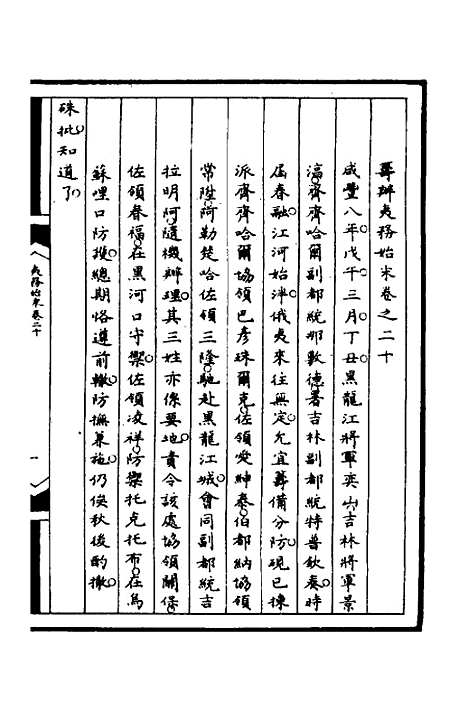 籌辦夷務始末卷之二十
咸豐八年戊午三月丁丑黑龍江將軍奕山吉林將軍景
淓齊齊哈爾副都統那敷德署吉林副都統特普欽奏時
屆春融江河始泮俄夷來往無定允宜籌備分防現已揀
派齊齊哈爾協領巴彥珠爾克佐領愛紳泰伯都納協領
常陞阿勒楚哈佐領三隆馳赴黑龍江城會同副都統吉
拉明阿隨機辦理其三姓亦係要地責令該處協領關保
佐領春福在黑河口守禦佐領凌祥防禦托克托布在烏
蘇哩口防授總期恪遵前轍防撫兼施仍俟秋後酌撤
硃批知道了
夷務始末卷二十
一